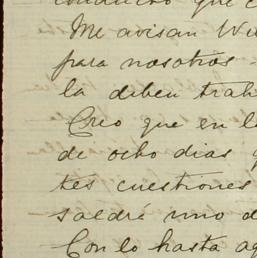 conducto que
Me avisan Wi
para nosotros -
la deben trah
Creo que en l
de ocho dias q
tes cuestiones
saldré uno d
Con lo hasta aq